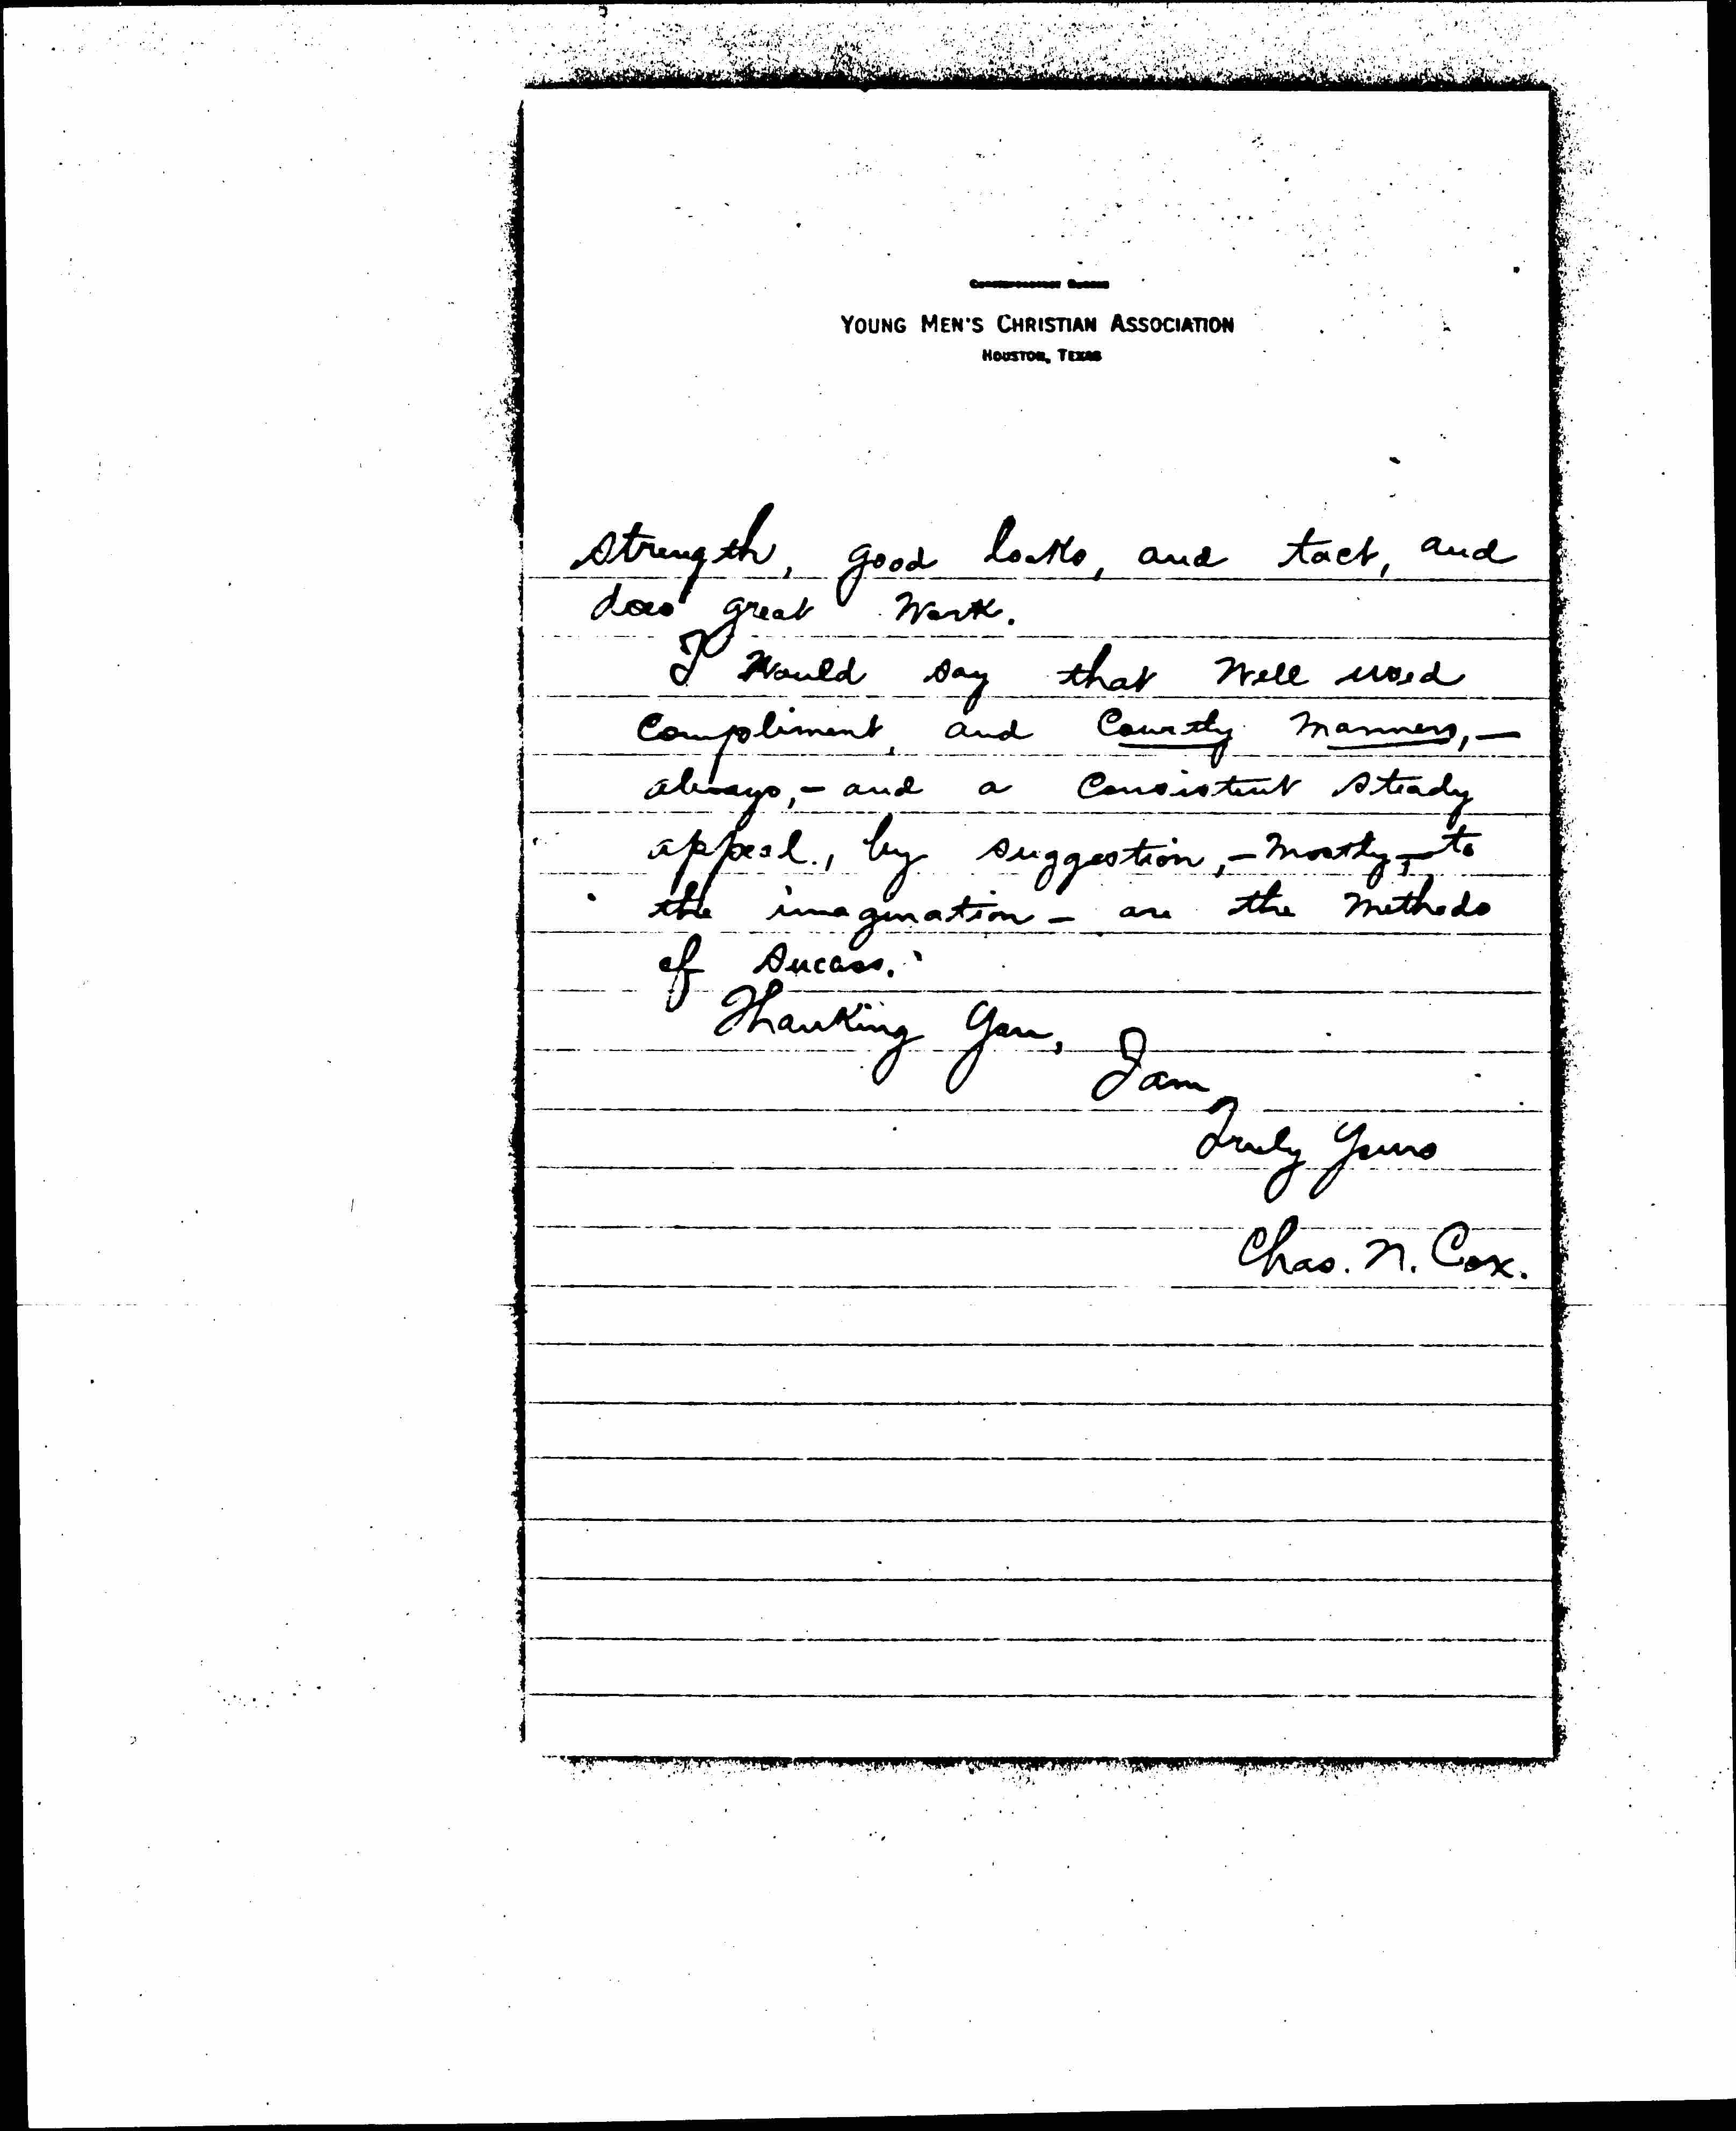 YOUNG MEN'S CHRISTIAN ASSOCIATION
HOUSTON, TEXAS
strength, good looks, and tact, and
does great work.
I would say that well used
compliment, and Courtly manners,-
always,- and a consistent steady
appeal, by suggestion,- mostly,- to
the imagination - are the methods
of sucess.
Thanking you,
I am
Truly yours
Chas. N. Cox.